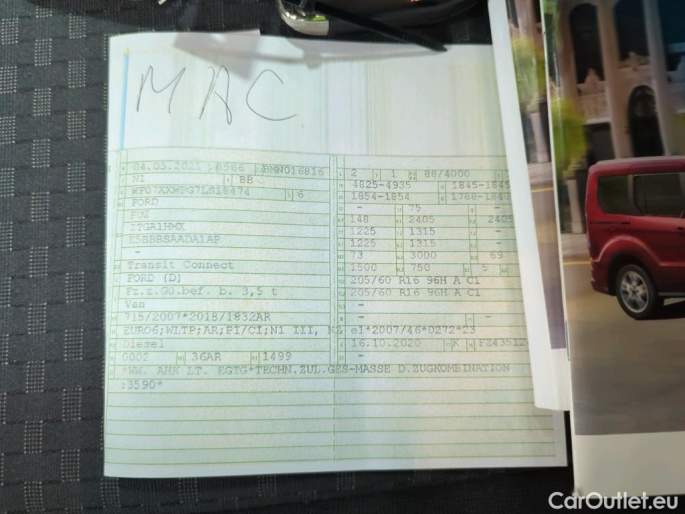 MAC
04.03.2021 8566 BMN016816 2 1 88/4000
N1 BB 4825-4935 1845-1845
1854-1854
FORD - 75 -
148 2405 2405
1225 1315 -
1225 1315 -
73 3000 69
Transit Connect 1500 750 5
FORD (D) 205/60 R16 96H A C1
Fz.z.Gü.bef. b. 3,5 t 205/60 R16 96H A C1
Van -
715/2007*2018/1832AR
EURO6;WLTP;AR;PI/CI;N1 III, e1*2007/46*0272*23
Diesel 16.10.2020 K
0002 36AR 1499 -
*WW. AHK LT. EGTG*TECHN.ZUL.GES-MASSE D.ZUGKOMBINATION
:3590*
CarOutlet.eu